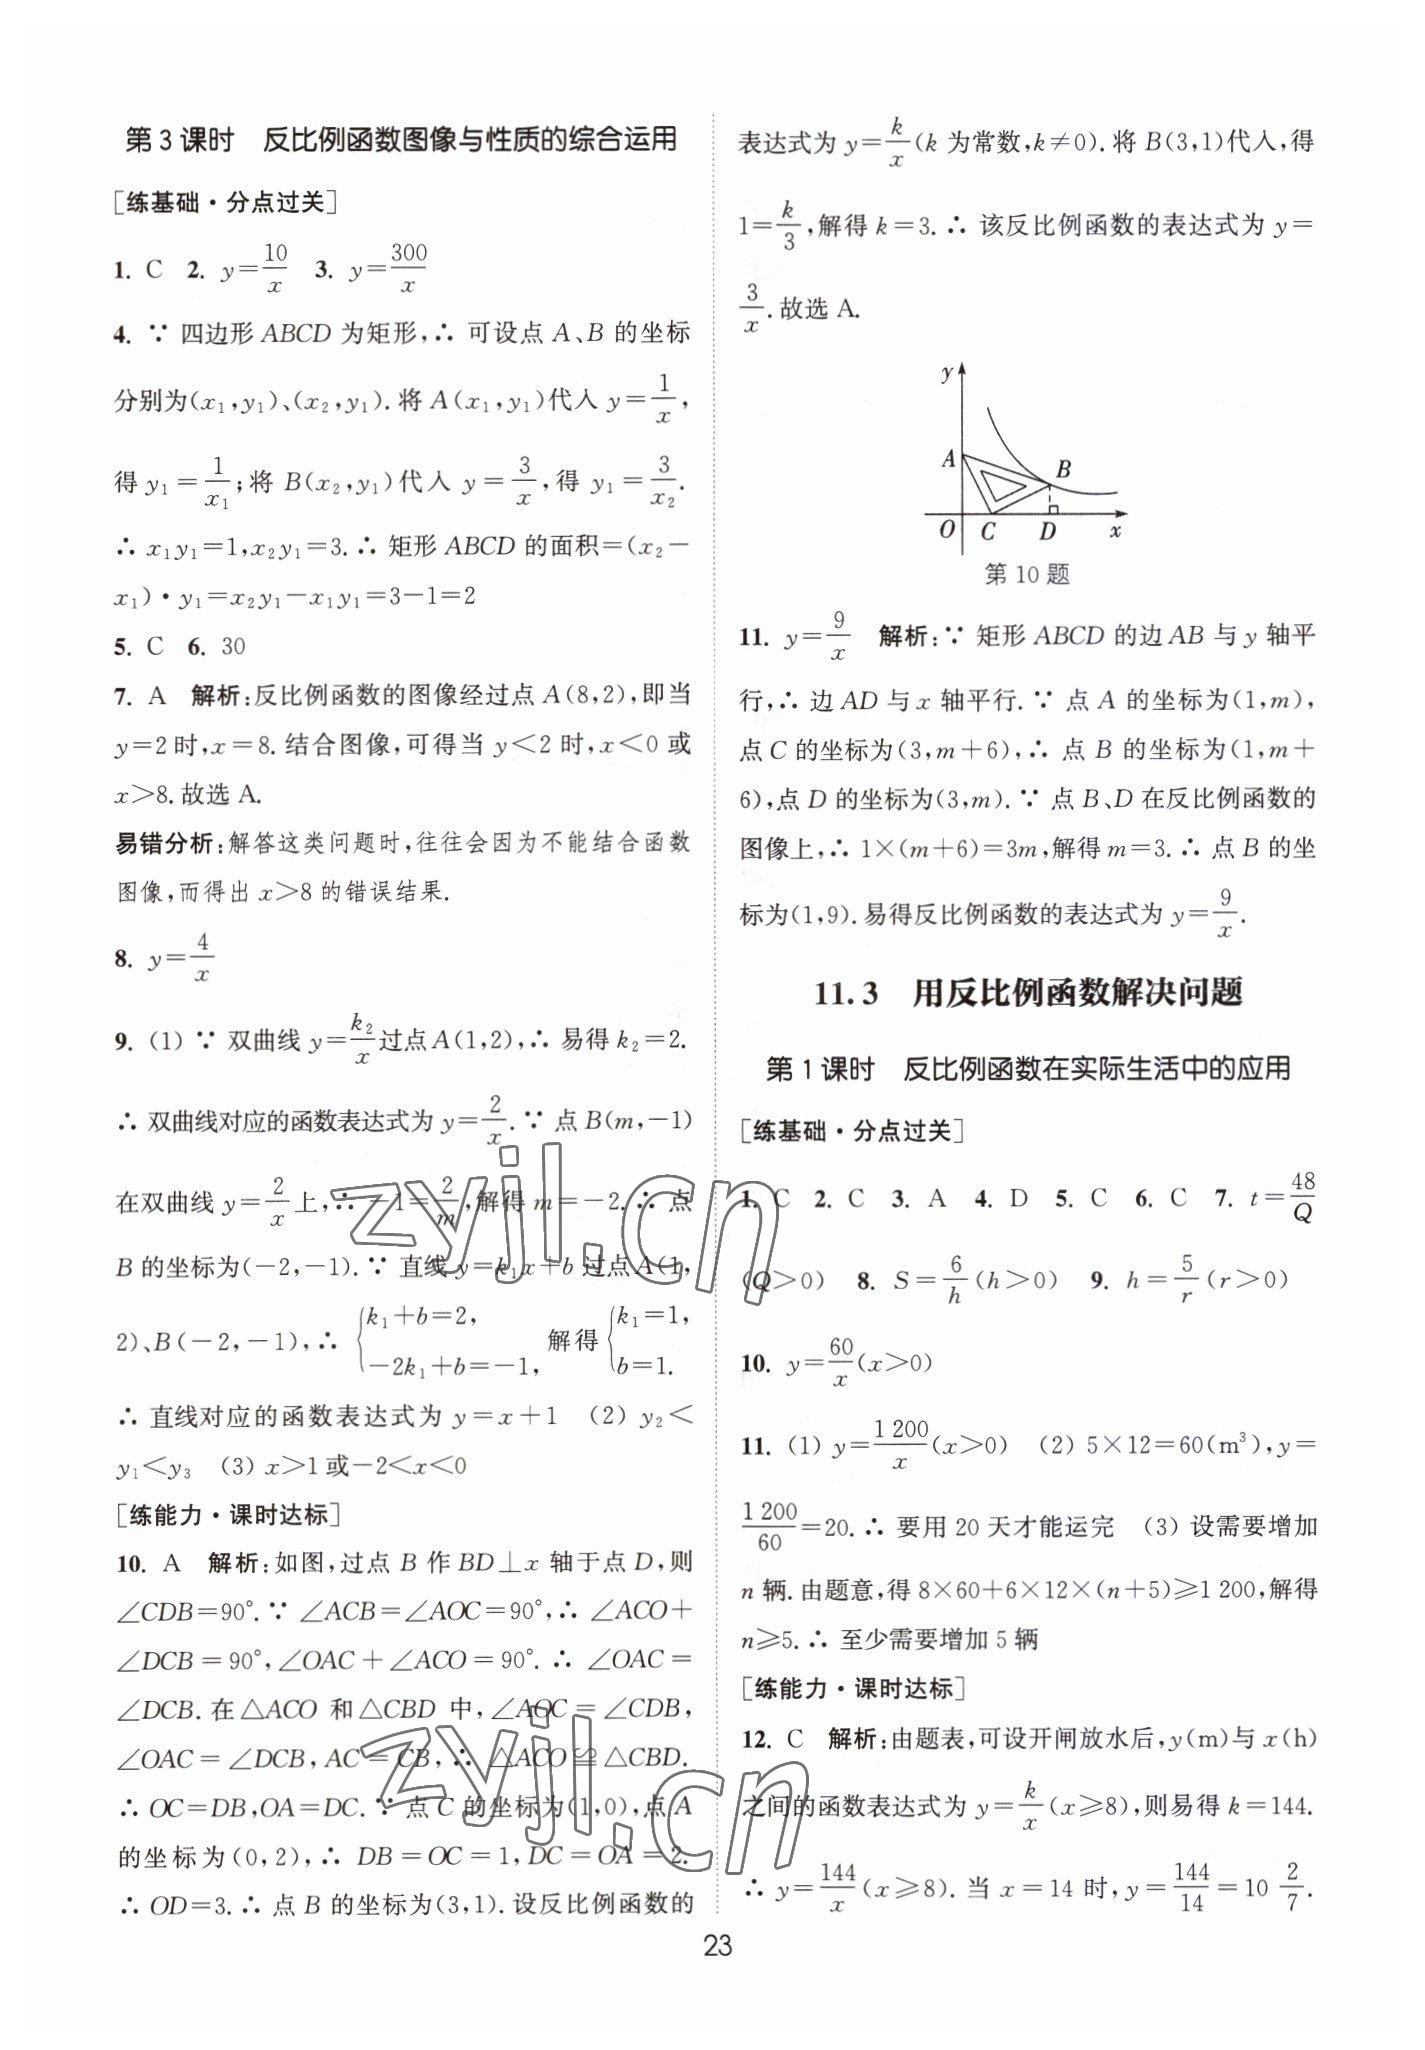 第3课时 反比例函数图像与性质的综合运用
[练基础·分点过关]
1. C 2. y=10/x 3. y=300/x
4. ∵ 四边形 ABCD 为矩形,∴ 可设点 A、B 的坐标
分别为(x₁,y₁)、(x₂,y₁).将 A(x₁,y₁)代入 y=1/x,
得 y₁=1/x₁;将 B(x₂,y₁)代入 y=3/x,得 y₁=3/x₂.
∴ x₁y₁=1,x₂y₁=3.∴ 矩形 ABCD 的面积=(x₂-
x₁)·y₁=x₂y₁-x₁y₁=3-1=2
5. C 6. 30
7. A 解析:反比例函数的图像经过点 A(8,2),即当
y=2时,x=8.结合图像,可得当 y<2时,x<0或
x>8.故选 A.
易错分析:解答这类问题时,往往会因为不能结合函数
图像,而得出 x>8的错误结果.
8. y=4/x
9. (1) ∵ 双曲线 y=k₂/x过点A(1,2),∴ 易得 k₂=2.
∴ 双曲线对应的函数表达式为 y=2/x.∵ 点 B(m,-1)
在双曲线 y=2/x上,∴ -1=2/m,解得 m=-2.∴ 点
B 的坐标为(-2,-1).∵ 直线 y=k₁x+b 过点A(1,
2)、B(-2,-1),∴ {k₁+b=2, -2k₁+b=-1, 解得{k₁=1, b=1.
∴ 直线对应的函数表达式为 y=x+1 (2) y₂<
y₁<y₃ (3) x>1或-2<x<0
[练能力·课时达标]
10. A 解析:如图,过点 B 作 BD⊥x 轴于点 D,则
∠CDB=90°.∵ ∠ACB=∠AOC=90°,∴ ∠ACO+
∠DCB=90°,∠OAC+∠ACO=90°.∴ ∠OAC=
∠DCB.在△ACO 和△CBD 中,∠AOC=∠CDB,
∠OAC=∠DCB,AC=CB,∴ △ACO≌△CBD.
∴ OC=DB,OA=DC.∵ 点 C 的坐标为(1,0),点 A
的坐标为(0,2),∴ DB=OC=1,DC=OA=2.
∴ OD=3.∴ 点 B 的坐标为(3,1).设反比例函数的
表达式为 y=k/x(k 为常数,k≠0).将 B(3,1)代入,得
1=k/3,解得 k=3.∴ 该反比例函数的表达式为 y=
3/x.故选 A.
y
A
B
O C D x
第10题
11. y=9/x 解析:∵ 矩形 ABCD 的边 AB 与 y 轴平
行,∴ 边 AD 与 x 轴平行.∵ 点 A 的坐标为(1,m),
点 C 的坐标为(3,m+6),∴ 点 B 的坐标为(1,m+
6),点 D 的坐标为(3,m).∵ 点 B、D 在反比例函数的
图像上,∴ 1×(m+6)=3m,解得 m=3.∴ 点 B 的坐
标为(1,9).易得反比例函数的表达式为 y=9/x.
11.3 用反比例函数解决问题
第1课时 反比例函数在实际生活中的应用
[练基础·分点过关]
1. C 2. C 3. A 4. D 5. C 6. C 7. t=48/Q
(Q>0) 8. S=6/h(h>0) 9. h=5/r(r>0)
10. y=60/x(x>0)
11. (1) y=1 200/x(x>0) (2) 5×12=60(m³),y=
1 200/60=20.∴ 要用 20 天才能运完 (3) 设需要增加
n 辆.由题意,得 8×60+6×12×(n+5)≥1 200,解得
n≥5.∴ 至少需要增加 5 辆
[练能力·课时达标]
12. C 解析:由题表,可设开闸放水后,y(m)与 x(h)
之间的函数表达式为 y=k/x(x≥8),则易得 k=144.
∴ y=144/x(x≥8).当 x=14 时,y=144/14=10 2/7.
23
zyjl.cn
zyjl.cn